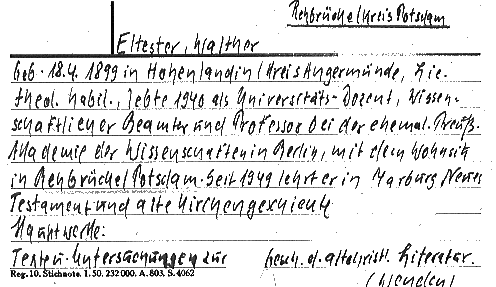 Rehbrücke/Kreis Potsdam
Eltester, Walther
geb. 18.4. 1899 in Hohenlandin/Kreis Angermünde, Lic.
theol. habil., lebte 1940 als Universitäts-Dozent, Wissen-
schaftlicher Beamter und Professor bei der ehemal. Preuß.
Akademie der Wissenschaften in Berlin, mit dem Wohnsitz
in Rehbrücke/Potsdam. Seit 1949 lehrt er in Marburg Neues
Testament und alte Kirchengeschichte
Hauptwerke:
Texte u. Untersuchungen zur Gesch. d. altchristl. Literatur.
Reg. 10. Stichnote. 1. 50. 232 000. A. 803. S. 4062
(wenden)